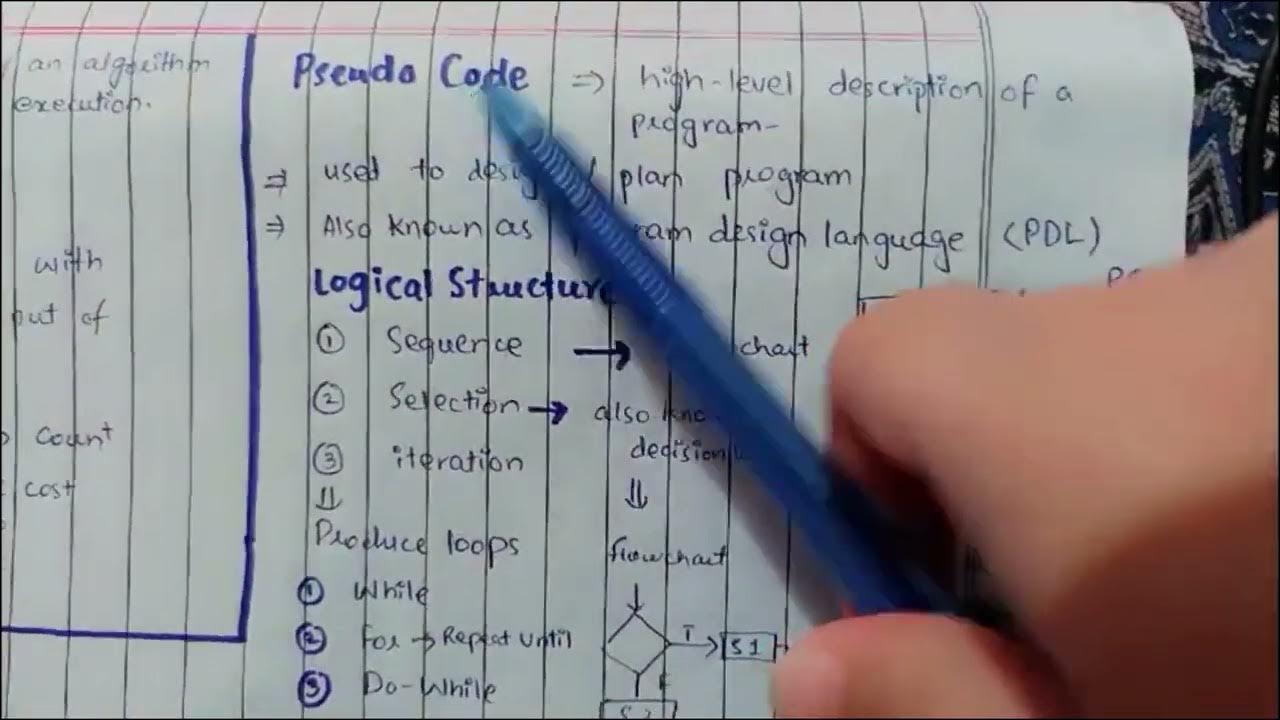 an algorithm
execution.
with
out of
count
cost
Pseudo Code ⇒ high-level description of a
program-
⇒ used to plan program
⇒ Also known as design language (PDL)
Logical Structure
① Sequence → chart
② Selection → also
decision
③ iteration
⇓ ⇓
Produce loops flowchart
① While
② For → Repeat until T → S1
③ Do-While